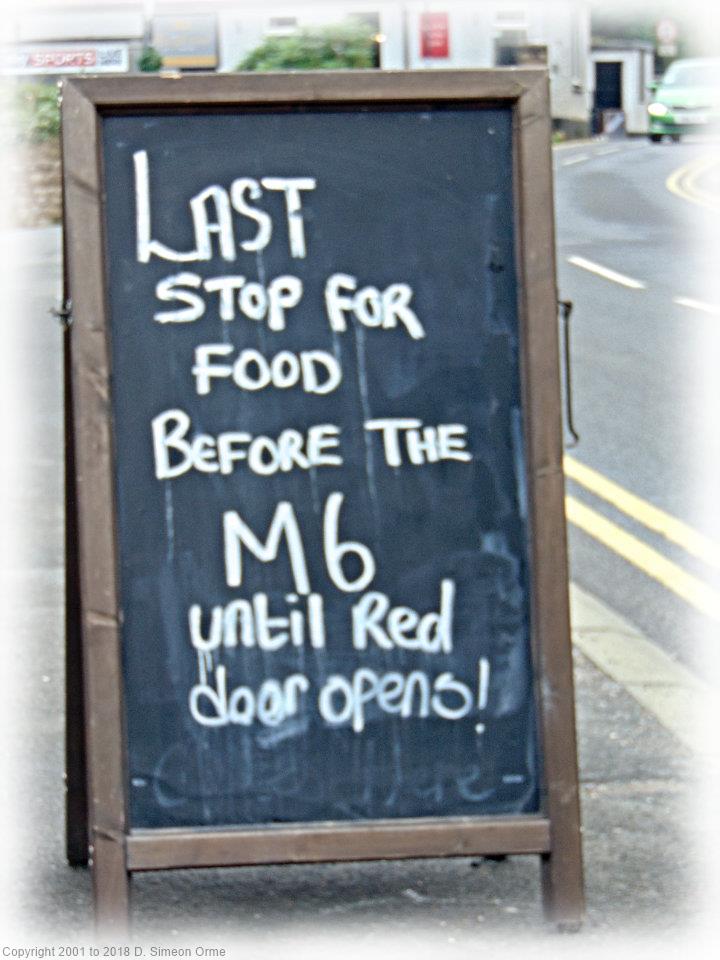 SPORTS
LAST
STOP FOR
FOOD
BEFORE THE
M6
until Red
door opens!
Copyright 2001 to 2018 D. Simeon Orme